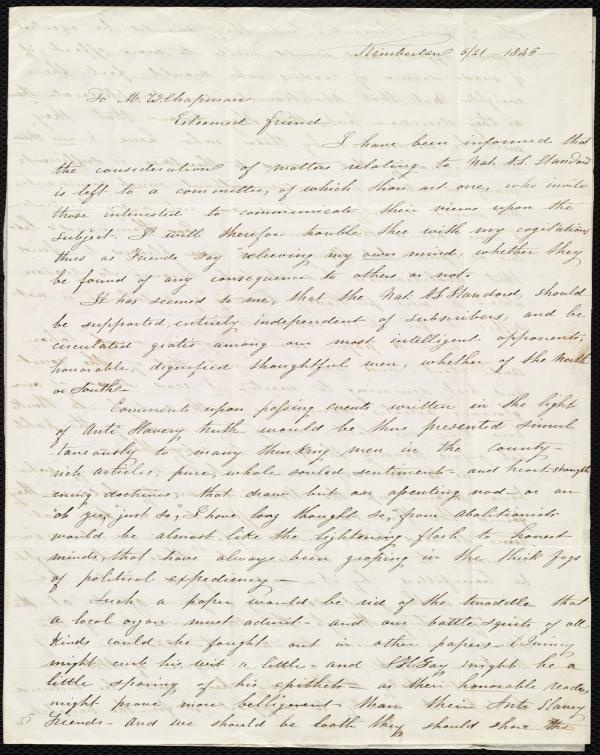 Kimberton 5/21 - 1846 -
To M. W. Chapman,
Esteemed friend,
I have been informed that
the consideration of matters relating to Nat. A.S. Standard
is left to a committee, of which thou art one, who invite
those interested to communicate their views upon the
subject. I will therefore trouble thee with my cogitations
thus as Friends say "relieving my own mind, whether they
be found of any consequence to others or not.
It has seemed to me, that the Nat. A.S. Standard, should
be supported, entirely independent of subscribers, and be
circulated gratis among our most intelligent opponents;
honorable, dignified thoughtful men, whether of the North
or South -
Comments upon passing events, written in the light
of Anti Slavery truth would be thus presented simul
-taneously to many thinking men in the county -
rich articles, pure whole souled sentiment - and heart strength
ening doctrines, that draw but an assenting nod - or an
"oh yes, just so", I have long thought so," from abolitionists
would be almost like the lightening flash to honest
minds, that have always been groping in the thick fogs
of political expediency -
Such a paper would be rid of the twaddle that
a local organ must admit - and our battle spirits of all
kinds could be fought out in other papers - E Quincy
might curb his wit a little - and S H Gay might be a
little sparing of his epithets - as their honorable readers
might prove more belligerent than their Anti Slavery
Friends - and we should be loath they should the